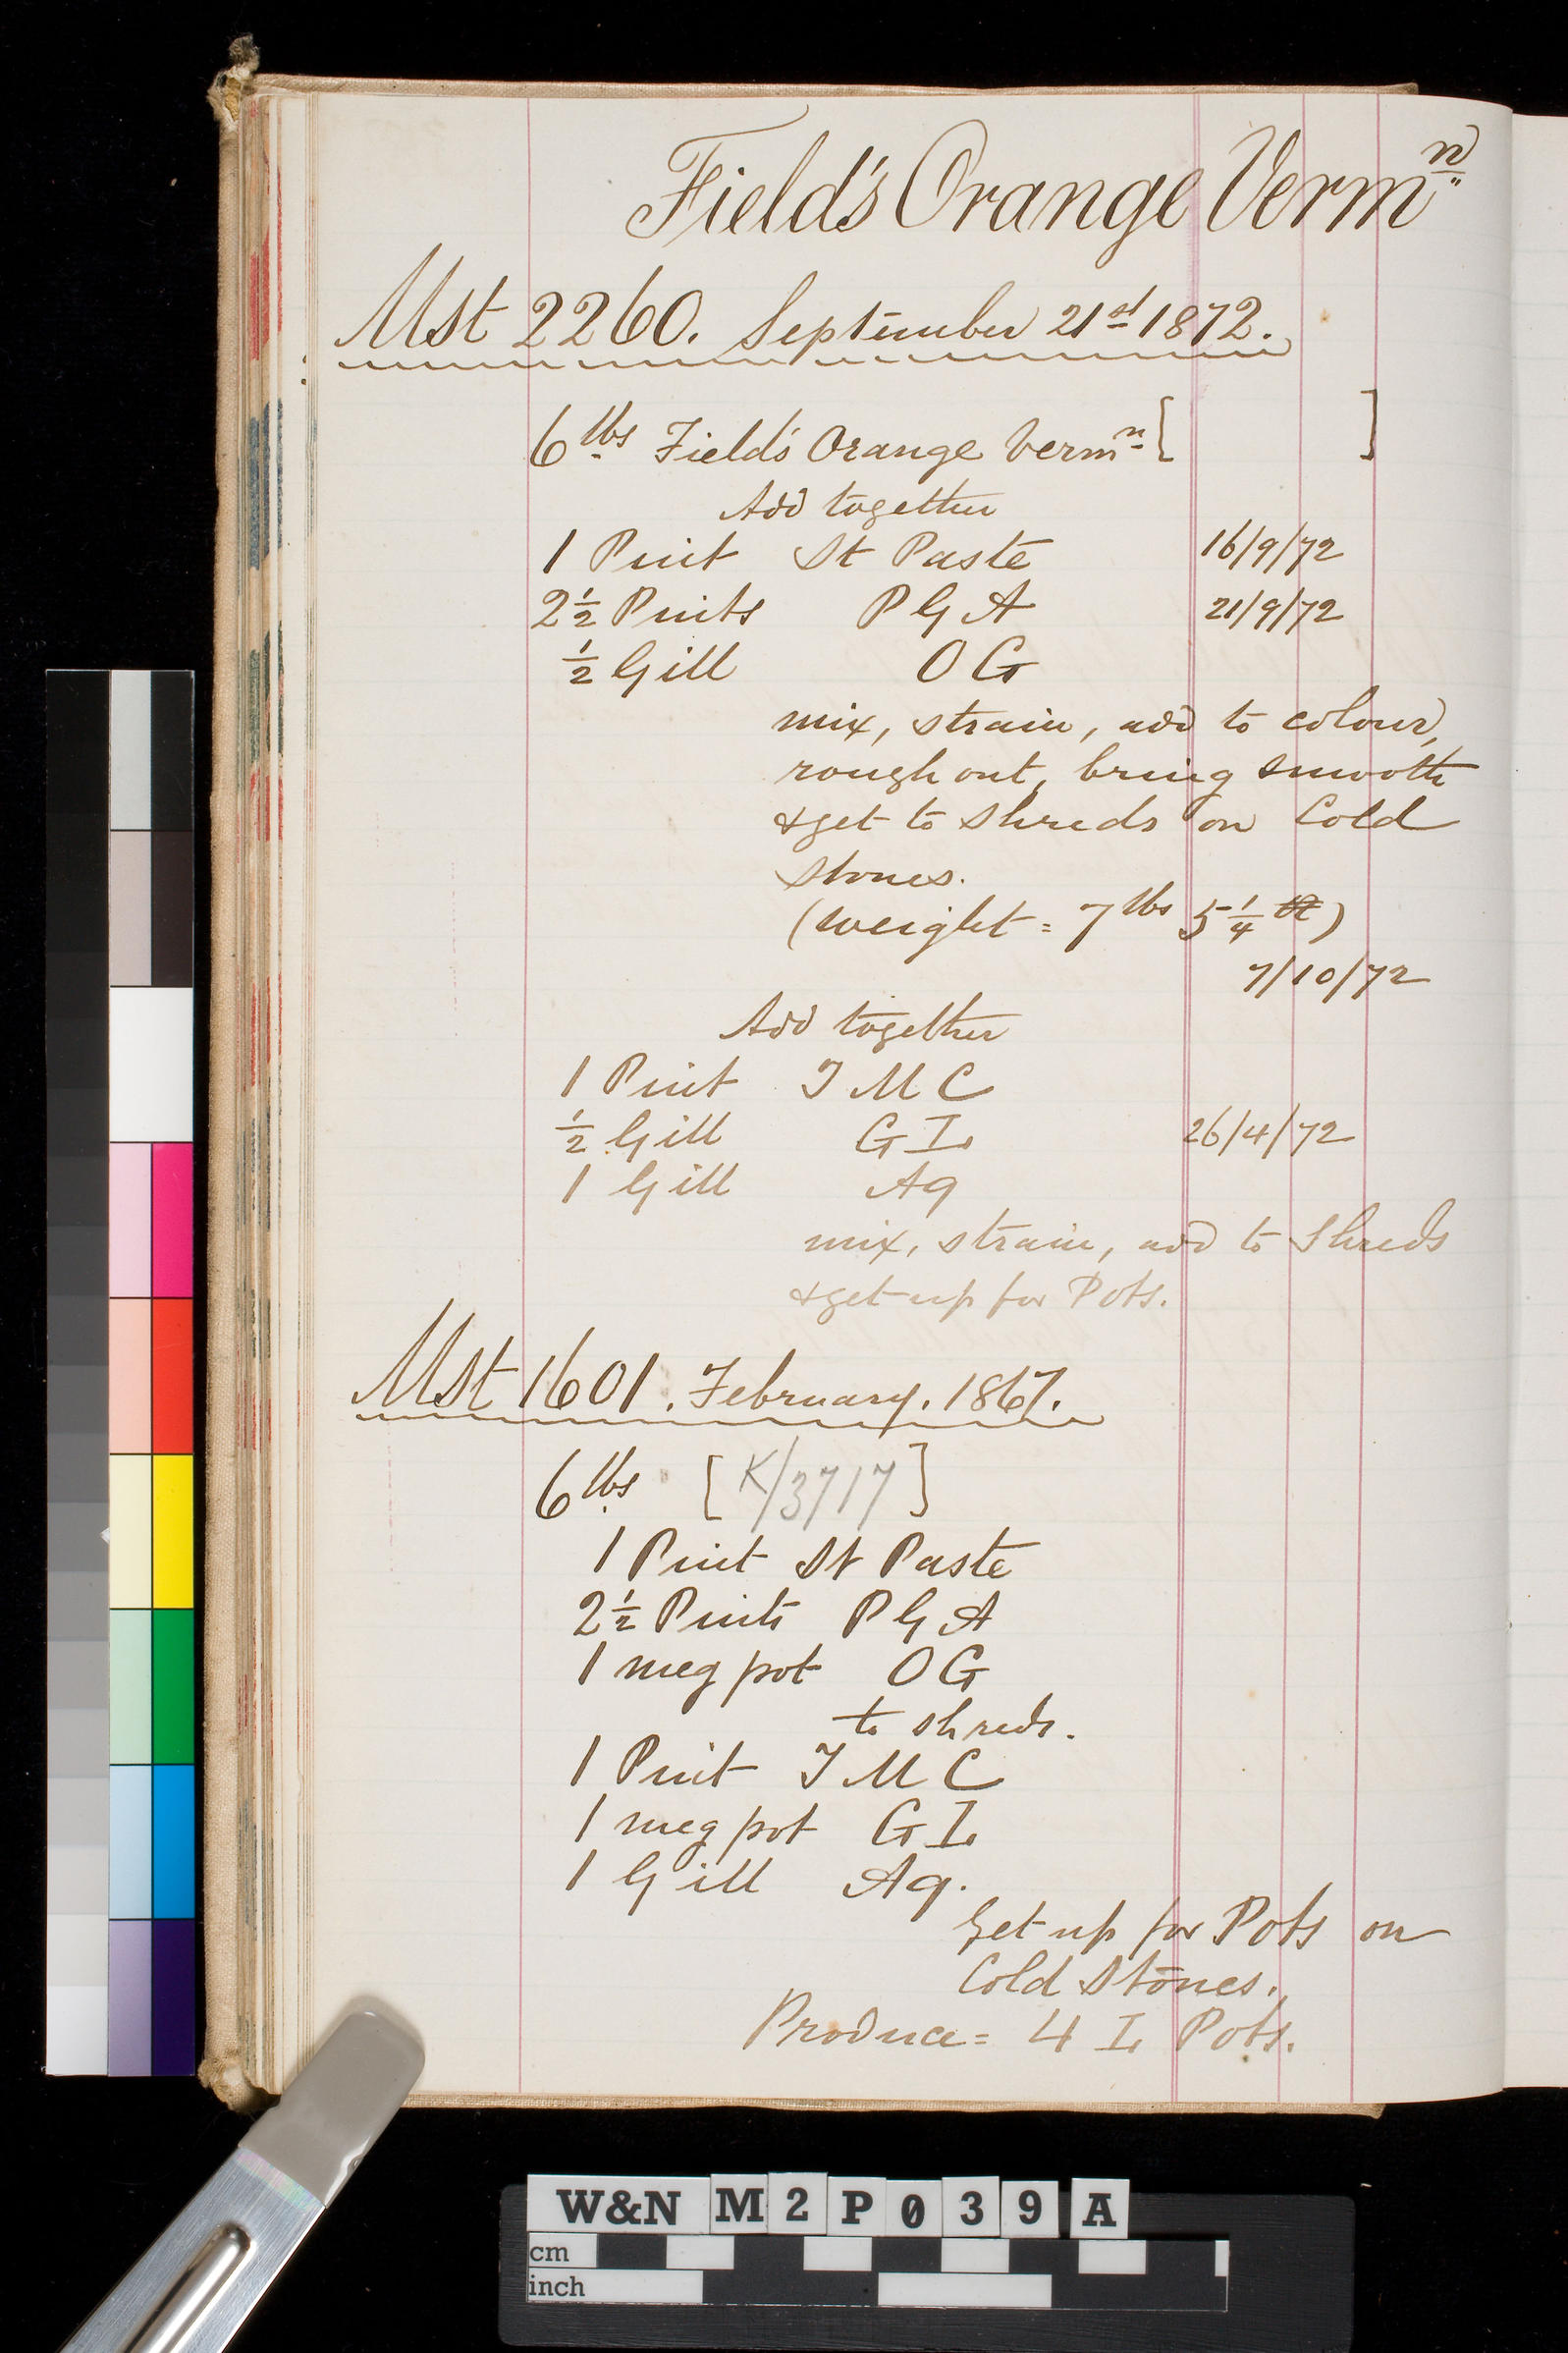 Field's Orange Vermn
Mst 2260. September 21st 1872.
6 lbs Field's Orange Vermn [ ]
Add together
1 Pint St Paste 16/9/72
2½ Pints P G A 21/9/72
½ Gill O G
mix, strain, add to colour,
rough out, bring smooth
& get to shreds on Cold
Stones.
(weight = 7 lbs 5¼
7/10/72
Add together
1 Pint T M C
½ Gill G L 26/4/72
1 Gill Aq
mix, strain, add to Shreds
& get up for Pots.
Mst 1601. February. 1867.
6 lbs [K/3717]
1 Pint St Paste
2½ Pints P G A
1 meg pot O G
to shreds.
1 Pint T M C
1 meg pot G L
1 Gill Aq.
Get up for Pots on
Cold Stones.
Produce = 4 L Pots.
W&N M2P039A
cm
inch